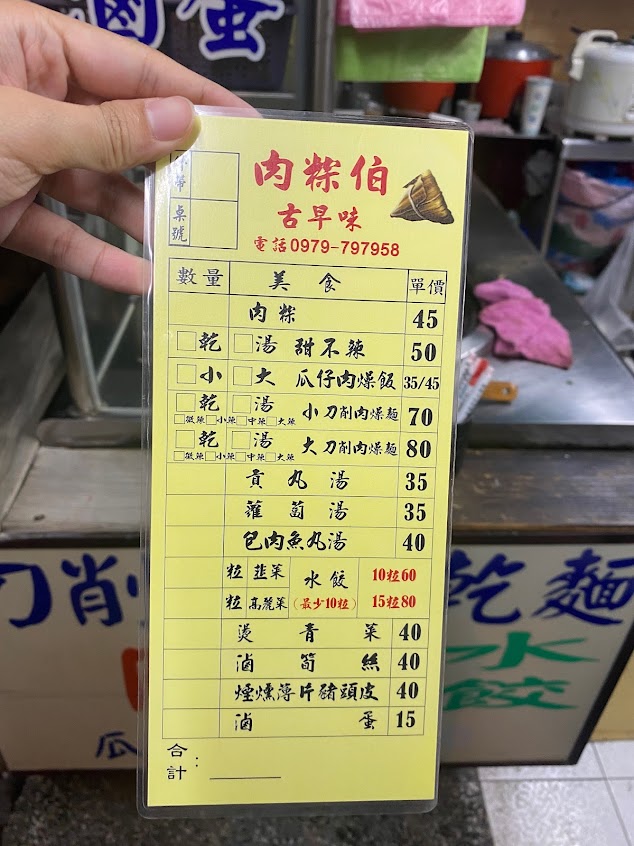 滷蛋
外帶
桌號
肉粽伯
古早味
電話0979-797958
數量 美食 單價
肉粽 45
乾 湯 甜不辣 50
小 大 瓜仔肉燥飯 35/45
乾 湯 小刀削肉燥麵 70
微辣 小辣 中辣 大辣
乾 湯 大刀削肉燥麵 80
微辣 小辣 中辣 大辣
貢丸湯 35
蘿蔔湯 35
包肉魚丸湯 40
粒 韭菜 水餃 10粒60
粒 高麗菜 (最少10粒) 15粒80
燙青菜 40
滷筍絲 40
煙燻薄片豬頭皮 40
滷蛋 15
合計：
刀削 乾麵
水餃
瓜